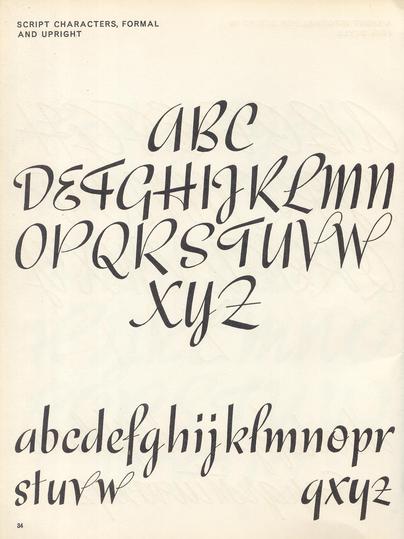 SCRIPT CHARACTERS, FORMAL
AND UPRIGHT
ABC
DEFGHIJKLMN
OPQRSTUVW
XYZ
abcdefghijklmnopr
stuvw qxyz
84